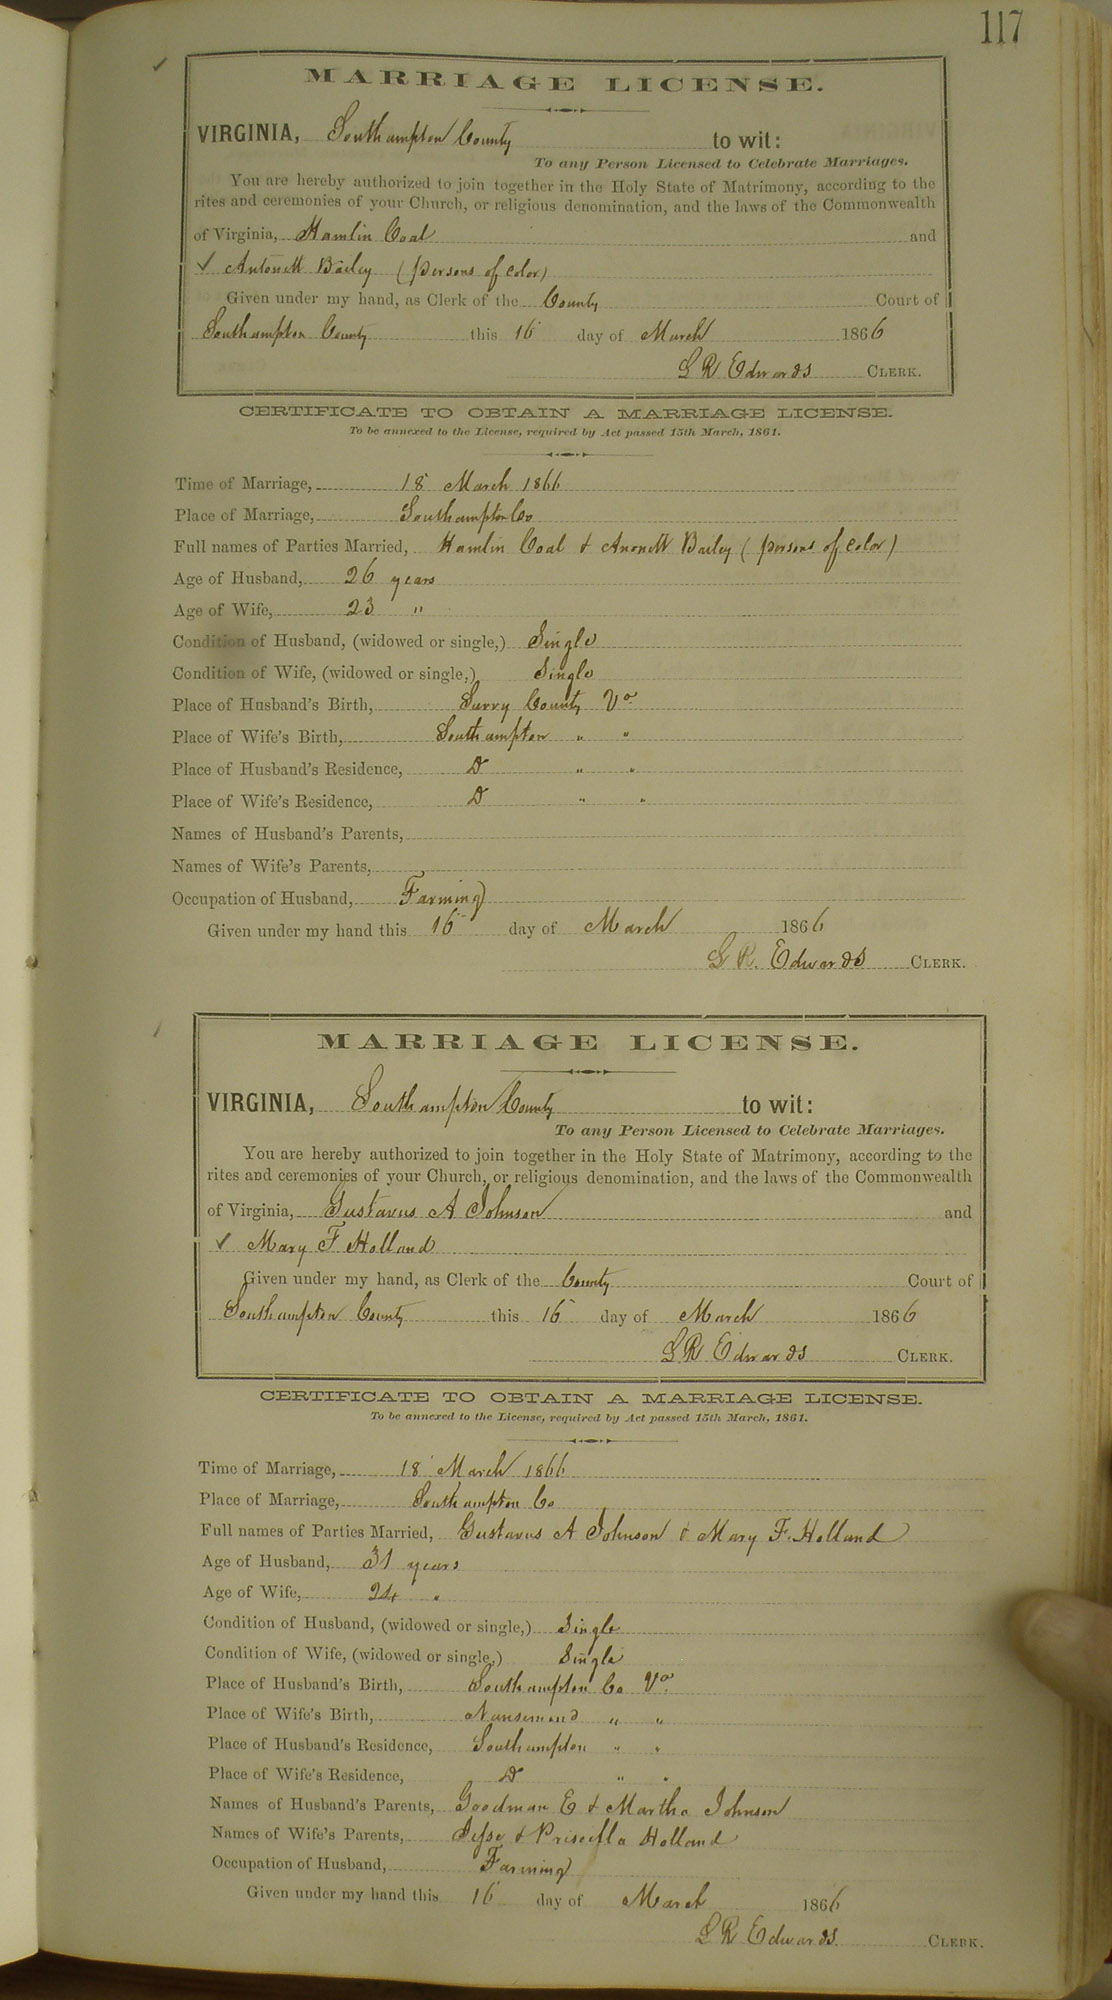 117
MARRIAGE LICENSE.
VIRGINIA, Southampton County to wit:
To any Person Licensed to Celebrate Marriages.
You are hereby authorized to join together in the Holy State of Matrimony, according to the
rites and ceremonies of your Church, or religious denomination, and the laws of the Commonwealth
of Virginia, Hamlin Coal and
✓ Antonett Bailey (persons of color)
Given under my hand, as Clerk of the County Court of
Southampton County this 16 day of March 1866
L R Edwards CLERK.
CERTIFICATE TO OBTAIN A MARRIAGE LICENSE.
To be annexed to the License, required by Act passed 15th March, 1861.
Time of Marriage, 18 March 1866
Place of Marriage, Southampton Co
Full names of Parties Married, Hamlin Coal & Anonett Bailey (persons of color)
Age of Husband, 26 years
Age of Wife, 23 "
Condition of Husband, (widowed or single,) Single
Condition of Wife, (widowed or single,) Single
Place of Husband's Birth, Surry County Va
Place of Wife's Birth, Southampton " "
Place of Husband's Residence, Do " "
Place of Wife's Residence, Do " "
Names of Husband's Parents,
Names of Wife's Parents,
Occupation of Husband, Farming
Given under my hand this 16 day of March 1866
L R. Edwards CLERK.
MARRIAGE LICENSE.
VIRGINIA, Southampton County to wit:
To any Person Licensed to Celebrate Marriages.
You are hereby authorized to join together in the Holy State of Matrimony, according to the
rites and ceremonies of your Church, or religious denomination, and the laws of the Commonwealth
of Virginia, Gustavus A Johnson and
✓ Mary F Holland
Given under my hand, as Clerk of the County Court of
Southampton County this 16 day of March 1866
L R Edwards CLERK.
CERTIFICATE TO OBTAIN A MARRIAGE LICENSE.
To be annexed to the License, required by Act passed 15th March, 1861.
Time of Marriage, 18 March 1866
Place of Marriage, Southampton Co
Full names of Parties Married, Gustavus A Johnson & Mary F. Holland
Age of Husband, 31 years
Age of Wife, 24 "
Condition of Husband, (widowed or single,) Single
Condition of Wife, (widowed or single,) Single
Place of Husband's Birth, Southampton Co Va
Place of Wife's Birth, Nansemond " "
Place of Husband's Residence, Southampton " "
Place of Wife's Residence, Do " "
Names of Husband's Parents, Goodman E & Martha Johnson
Names of Wife's Parents, Jesse & Priscilla Holland
Occupation of Husband, Farming
Given under my hand this 16 day of March 1866
L R Edwards CLERK.